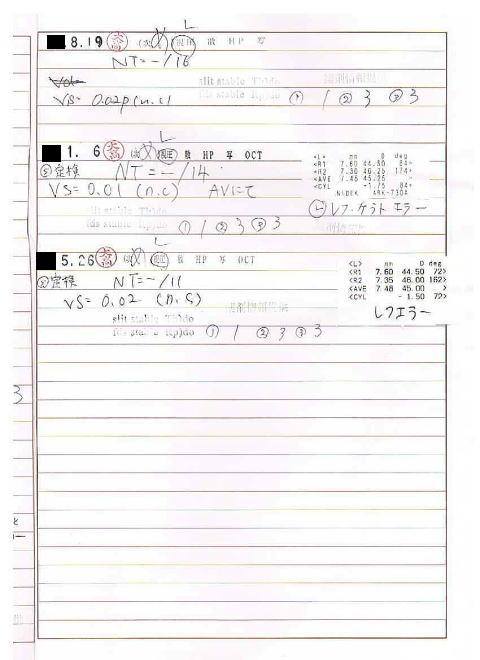 L
8.19 視圧 散 HP 写
NT=-/16
slit stable Th)do
fds stable Rp)do
VS= 0.02p(n.c) ① 1 ② 3 ③ 3
L
1. 6 視圧 散 HP 写 OCT
定検 NT=-/14
VS=0.01 (n.c) AVにて
<L> mm D deg
<R1 7.60 44.50 84>
<R2 7.30 46.25 174>
<AVE 7.45 45.25 >
<CYL -1.75 84>
NIDEK ARK-730A
レフ・ケラト エラー
slit stable Th)do
fds stable Rp)do
① 1 ② 3 ③ 3
L
5.26 視圧 散 HP 写 OCT
定検 NT=-/11
VS= 0.02 (n.c)
<L> mm D deg
<R1 7.60 44.50 72>
<R2 7.35 46.00 162>
<AVE 7.48 45.00 >
<CYL - 1.50 72>
レフエラー
slit stable Th)do
fds stable Rp)do ① 1 ② 3 ③ 3